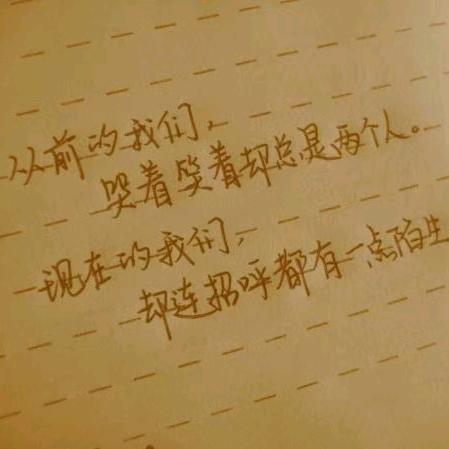 从前的我们，
哭着笑着却总是两个人。
现在的我们，
却连招呼都有一点陌生